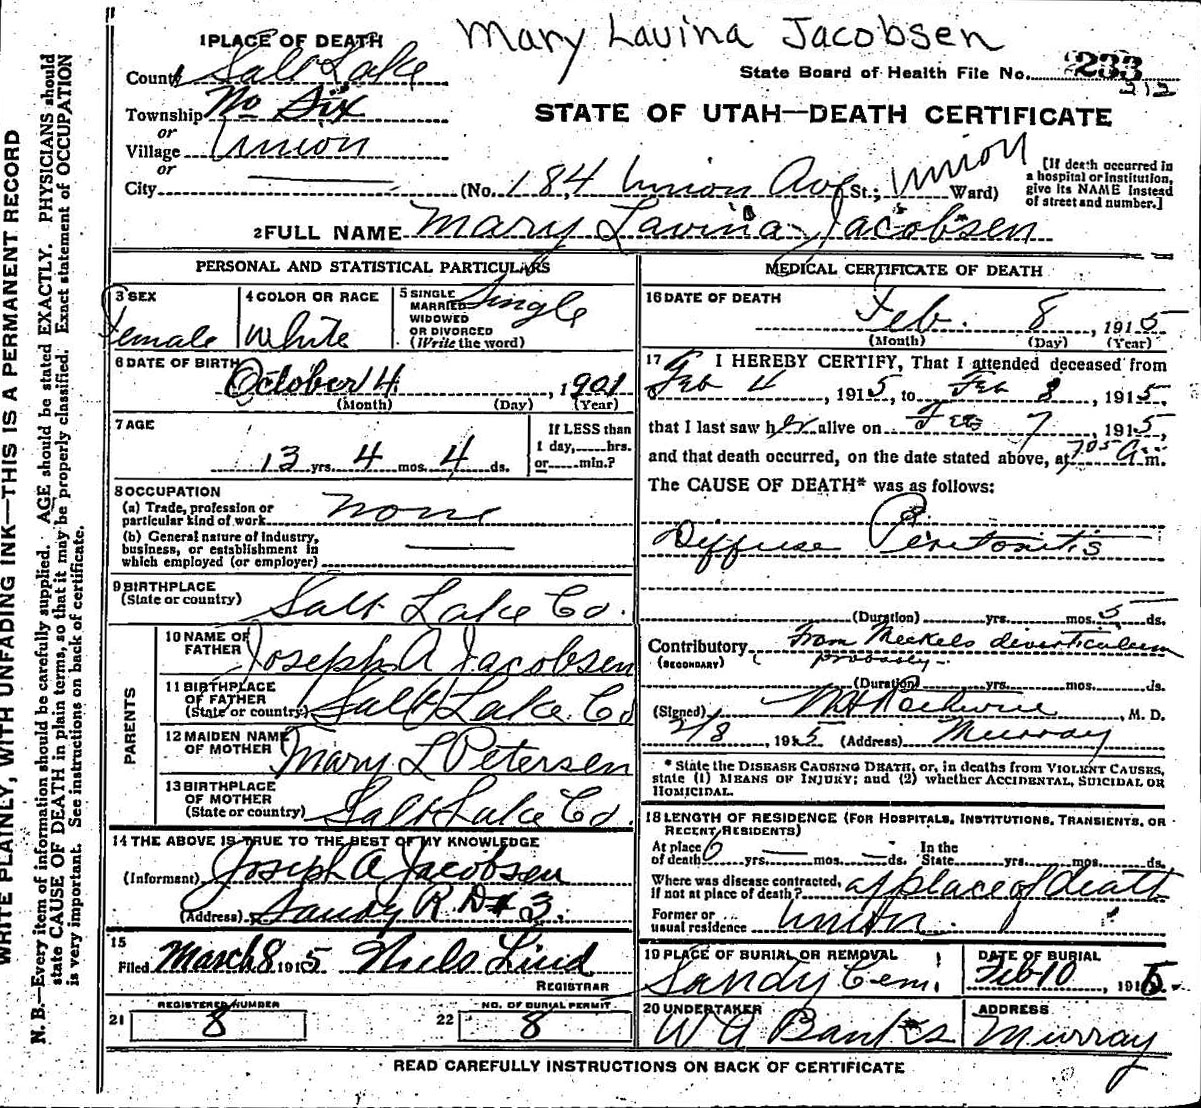 Mary Lavina Jacobsen
1 PLACE OF DEATH
County Salt Lake
State Board of Health File No. 233
212
Township No Six
or
Village Union
STATE OF UTAH—DEATH CERTIFICATE
or
City (No. 184 Union Ave St.; Union Ward)
[If death occurred in
a hospital or institution,
give its NAME instead
of street and number.]
2 FULL NAME Mary Lavina Jacobsen
PERSONAL AND STATISTICAL PARTICULARS
3 SEX
Female
4 COLOR OR RACE
White
5 SINGLE
MARRIED
WIDOWED
OR DIVORCED
(Write the word)
Single
6 DATE OF BIRTH
October 4, 1901
(Month) (Day) (Year)
7 AGE
13 yrs. 4 mos. 4 ds.
If LESS than
1 day, hrs.
or min.?
8 OCCUPATION
(a) Trade, profession or
particular kind of work none
(b) General nature of industry,
business, or establishment in
which employed (or employer)
9 BIRTHPLACE
(State or country) Salt Lake Co.
PARENTS
10 NAME OF
FATHER Joseph A Jacobsen
11 BIRTHPLACE
OF FATHER
(State or country) Salt Lake Co
12 MAIDEN NAME
OF MOTHER Mary L Petersen
13 BIRTHPLACE
OF MOTHER
(State or country) Salt Lake Co.
14 THE ABOVE IS TRUE TO THE BEST OF MY KNOWLEDGE
(Informant) Joseph A Jacobsen
(Address) Sandy R. D # 3.
15
Filed March 8 1915 Niels Lind
REGISTRAR
REGISTERED NUMBER
21 8
NO. OF BURIAL PERMIT
22 8
MEDICAL CERTIFICATE OF DEATH
16 DATE OF DEATH
Feb. 8, 1915
(Month) (Day) (Year)
17 I HEREBY CERTIFY, That I attended deceased from
Feb 4, 1915, to Feb 8, 1915,
that I last saw her alive on Feb 7, 1915,
and that death occurred, on the date stated above, at 7.05 A.m.
The CAUSE OF DEATH* was as follows:
Diffuse Peritonitis
(Duration) yrs. mos. 5 ds.
Contributory From Meckels diverticulum
(SECONDARY) probably
(Duration) yrs. mos. ds.
(Signed) , M. D.
2/8, 1915 (Address) Murray
* State the DISEASE CAUSING DEATH, or, in deaths from VIOLENT CAUSES,
state (1) MEANS OF INJURY; and (2) whether ACCIDENTAL, SUICIDAL OR
HOMICIDAL.
18 LENGTH OF RESIDENCE (FOR HOSPITALS, INSTITUTIONS, TRANSIENTS, OR
RECENT RESIDENTS)
At place In the
of death 6 yrs. mos. ds. State yrs. mos. ds.
Where was disease contracted,
if not at place of death? at place of death
Former or
usual residence Union
19 PLACE OF BURIAL OR REMOVAL
Sandy Cem.
DATE OF BURIAL
Feb 10, 1915
20 UNDERTAKER
W A Banks
ADDRESS
Murray
READ CAREFULLY INSTRUCTIONS ON BACK OF CERTIFICATE
WRITE PLAINLY, WITH UNFADING INK—THIS IS A PERMANENT RECORD
N. B.—Every item of information should be carefully supplied. AGE should be stated EXACTLY. PHYSICIANS should
state CAUSE OF DEATH in plain terms, so that it may be properly classified. Exact statement of OCCUPATION
is very important. See instructions on back of certificate.